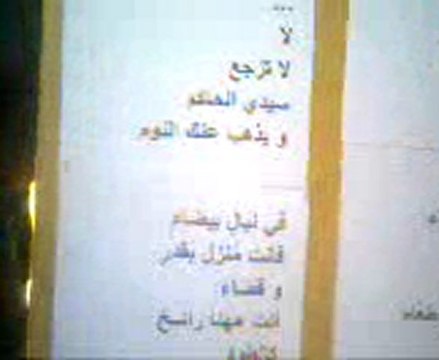 ...
لا
لا ترجع
سيدي الحاكم
و يذهب عنك النوم
في ليال بيضاء
فأنت منزل بقدر
و قضاء
أنت مهنا راسخ